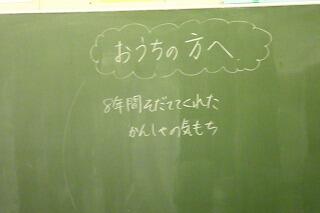 おうちの方へ
8年間そだててくれた
かんしゃの気もち